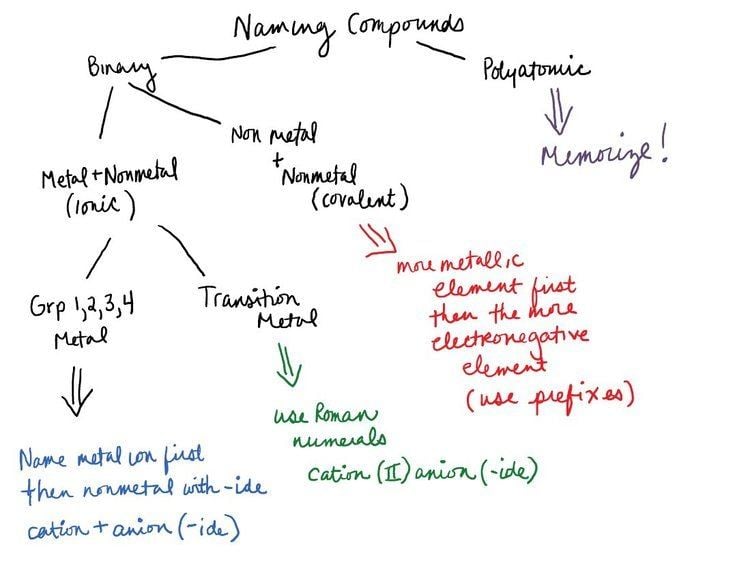 Naming Compounds
Binary
Polyatomic
Memorize!
Non metal
+
Nonmetal
(covalent)
Metal + Nonmetal
(ionic)
more metallic
element first
then the more
electronegative
element
(use prefixes)
Grp 1,2,3,4
Metal
Transition
Metal
use Roman
numerals
cation (II) anion (-ide)
Name metal ion first
then nonmetal with -ide
cation + anion (-ide)